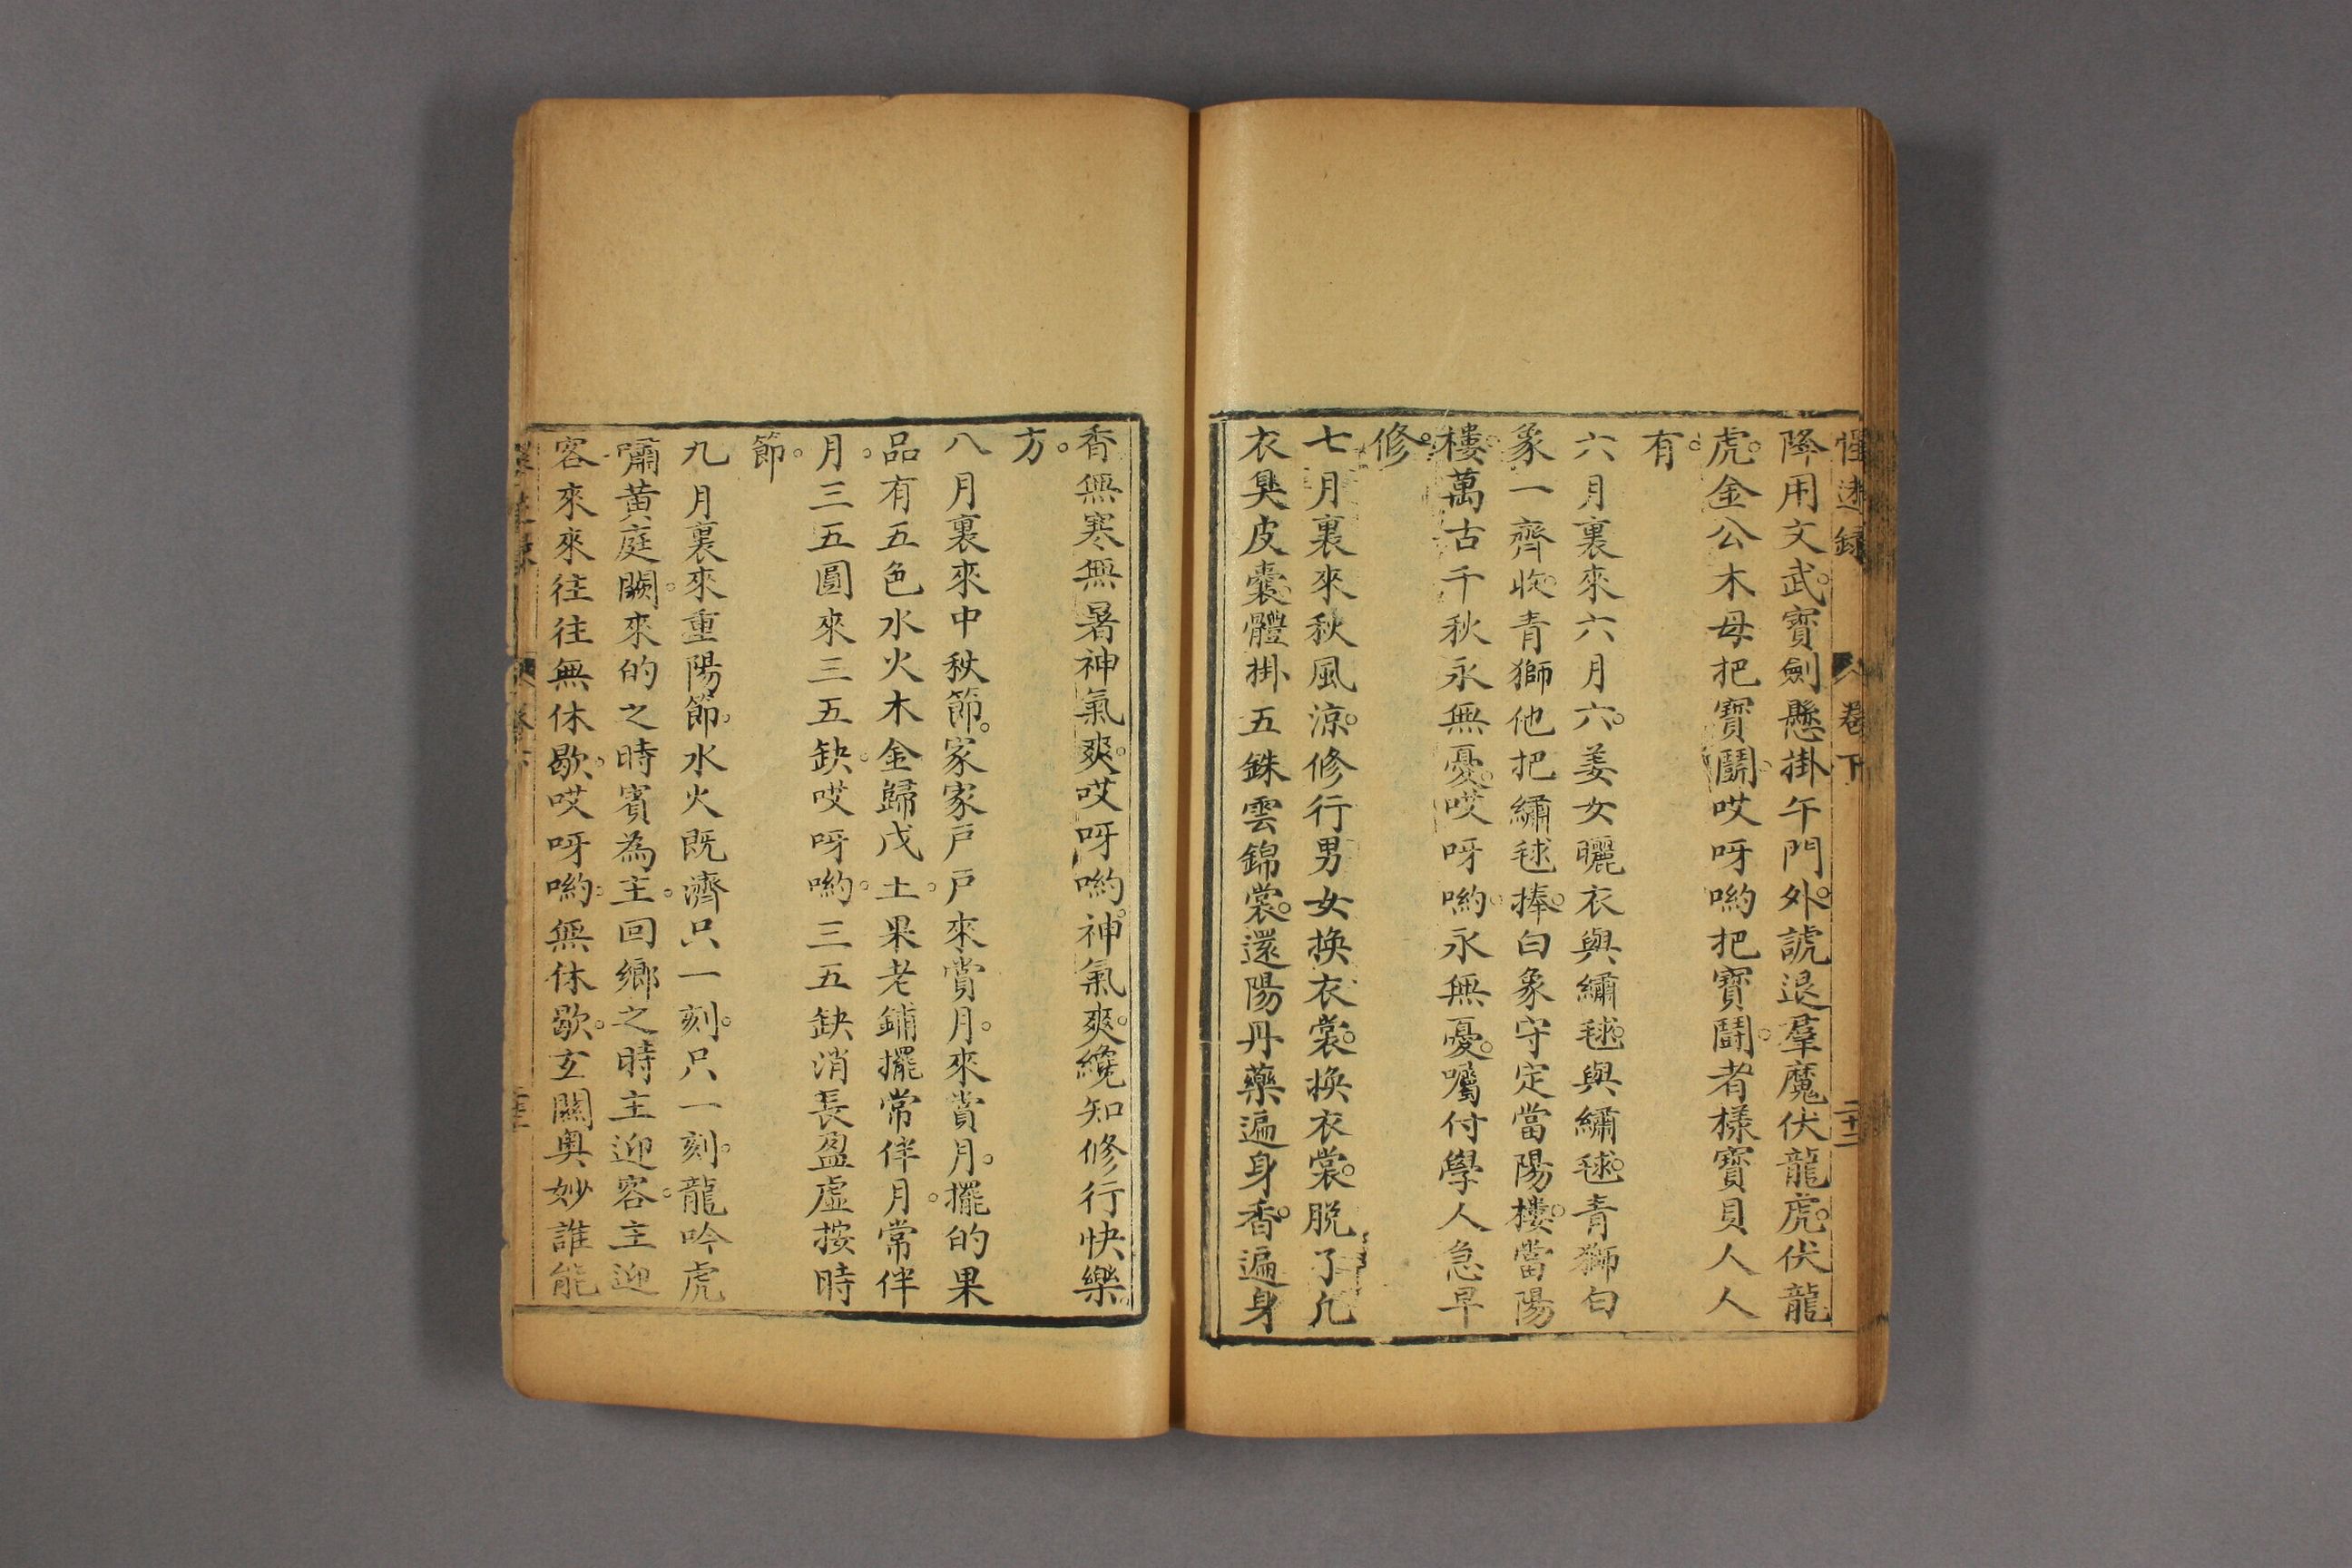 惺迷錄 卷下 二十二
降用文武。寶劍懸掛午門外。諕退羣魔伏龍虎。伏龍
虎。金公木母把寶鬪。哎呀喲把寶鬪。者樣寶貝人人
有。
六月裏來六月六。姜女曬衣與繡毬。與繡毬。青獅白
象一齊收。青獅他把繡毬捧。白象守定當陽樓。當陽
樓。萬古千秋永無憂。哎呀喲。永無憂。囑付學人急早
修。
七月裏來秋風涼。修行男女換衣裳。換衣裳。脱了凢
衣臭皮囊。體掛五銖雲錦裳。還陽丹藥遍身香。遍身
香無寒無暑神氣爽。哎呀喲。神氣爽。纔知修行快樂
方。
八月裏來中秋節。家家戸戸來賞月。來賞月。擺的果
品有五色水火木金歸戊土。果老鋪擺常伴月。常伴
月。三五圓來三五缺。哎呀喲。三五缺消長盈虛按時
節。
九月裏來重陽節。水火既濟只一刻。只一刻。龍吟虎
嘯黃庭闕。來的之時賓為主。回鄉之時主迎客。主迎
客來來往往無休歇。哎呀喲。無休歇。玄關奥妙誰能